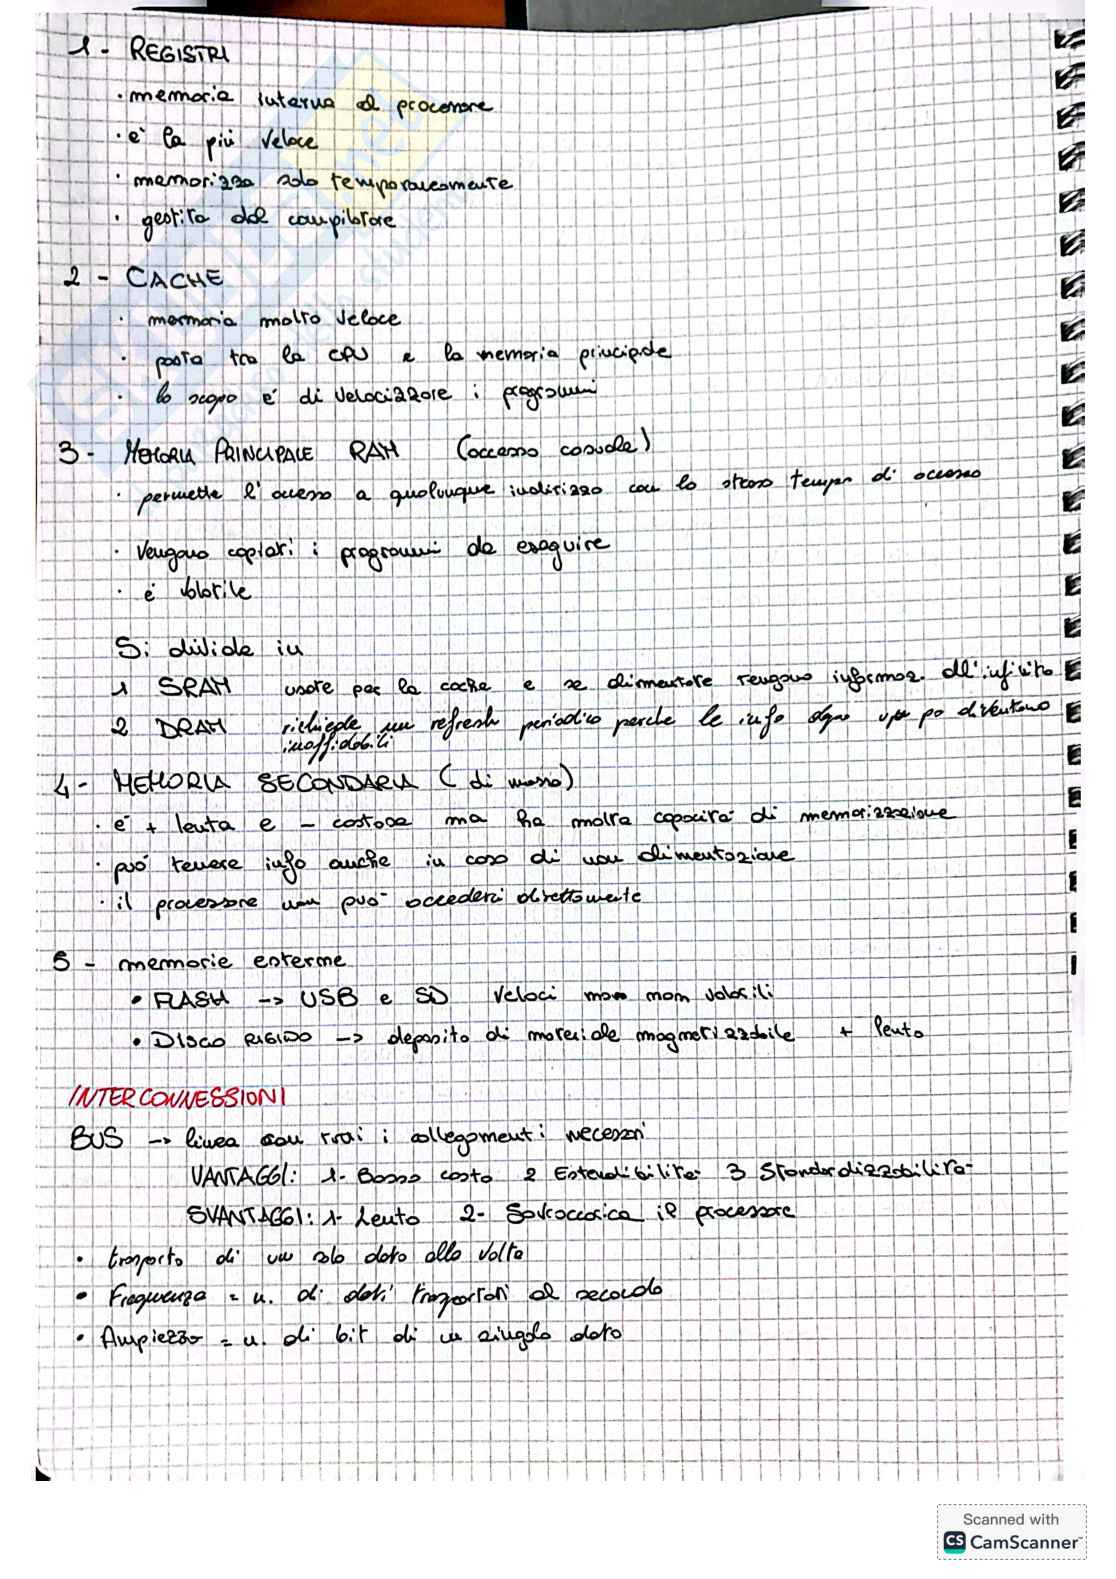 1 - REGISTRI
· memoria interna al processore
· e' la più veloce
· memorizza solo temporaneamente
· gestita dal compilatore
2 - CACHE
· memoria molto veloce
· posta tra la CPU e la memoria principale
· lo scopo e' di velocizzare i programmi
3 - MEMORIA PRINCIPALE RAM (accesso casuale)
· permette l'accesso a qualunque indirizzo con lo stesso tempo di accesso
· Vengono copiati i programmi da eseguire
· é volatile
Si divide in
1 SRAM usate per la cache e se alimentate tengono informaz. all'infinito
2 DRAM richiede un refresh periodico perche le info dopo un po diventano
inaffidabili
4 - MEMORIA SECONDARIA (di massa)
· e' + lenta e - costosa ma ha molta capacità di memorizzazione
· puó tenere info anche in caso di non alimentazione
· il processore non puó accederci direttamente
5 - memorie esterne
• FLASH -> USB e SD Veloci non volatili
• DISCO RIGIDO -> deposito di materiale magnetizzabile + lento
INTERCONNESSIONI
BUS -> linea con i collegamenti necessari
VANTAGGI: 1- Basso costo 2 Estendibilità 3 Standardizzabilità
SVANTAGGI: 1- Lento 2- Sovraccarica il processore
• trasporto di un solo dato alla volta
• Frequenza = n. di dati trasportati al secondo
• Ampiezza = n. di bit di un singolo dato
Scanned with
CS CamScanner